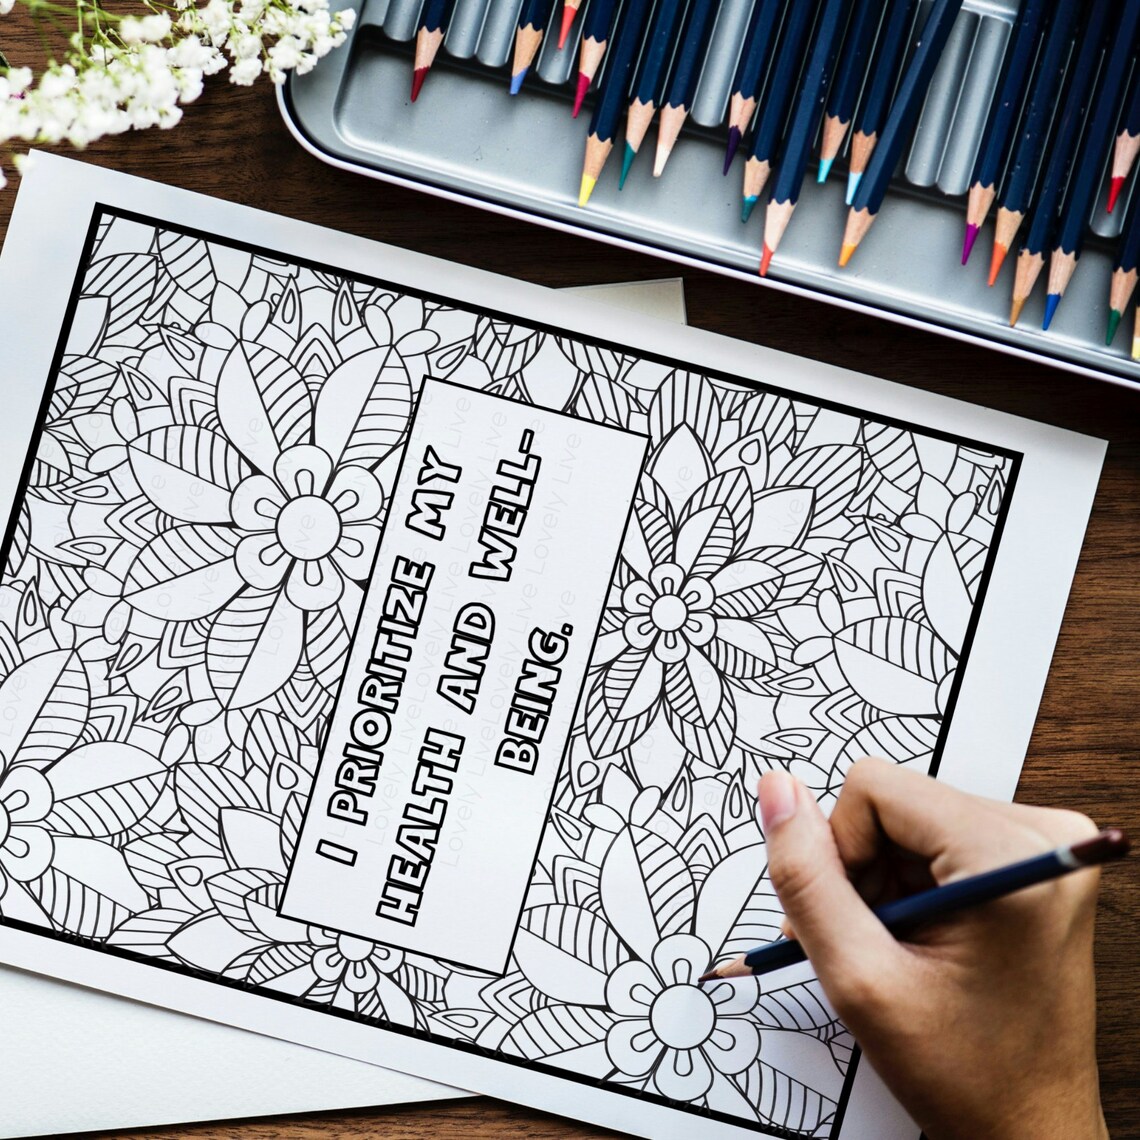 I PRIORITIZE MY
HEALTH AND WELL-
BEING.
Lovely Live
Lovely Live
Lovely Live
Lovely Live
Lovely Live
Lovely Live